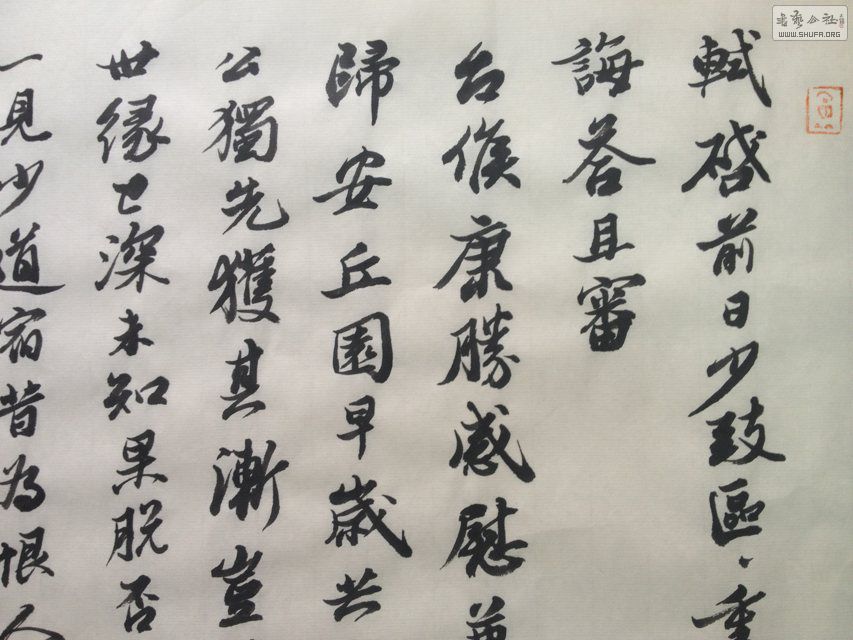 軾啓前日少致區、重
誨答且審
台候康勝感慰
歸安丘園早歲共
公獨先獲其漸豈
世緣已深未知果脫否
一見少道宿昔為恨人
書藝公社
WWW.SHUFA.ORG